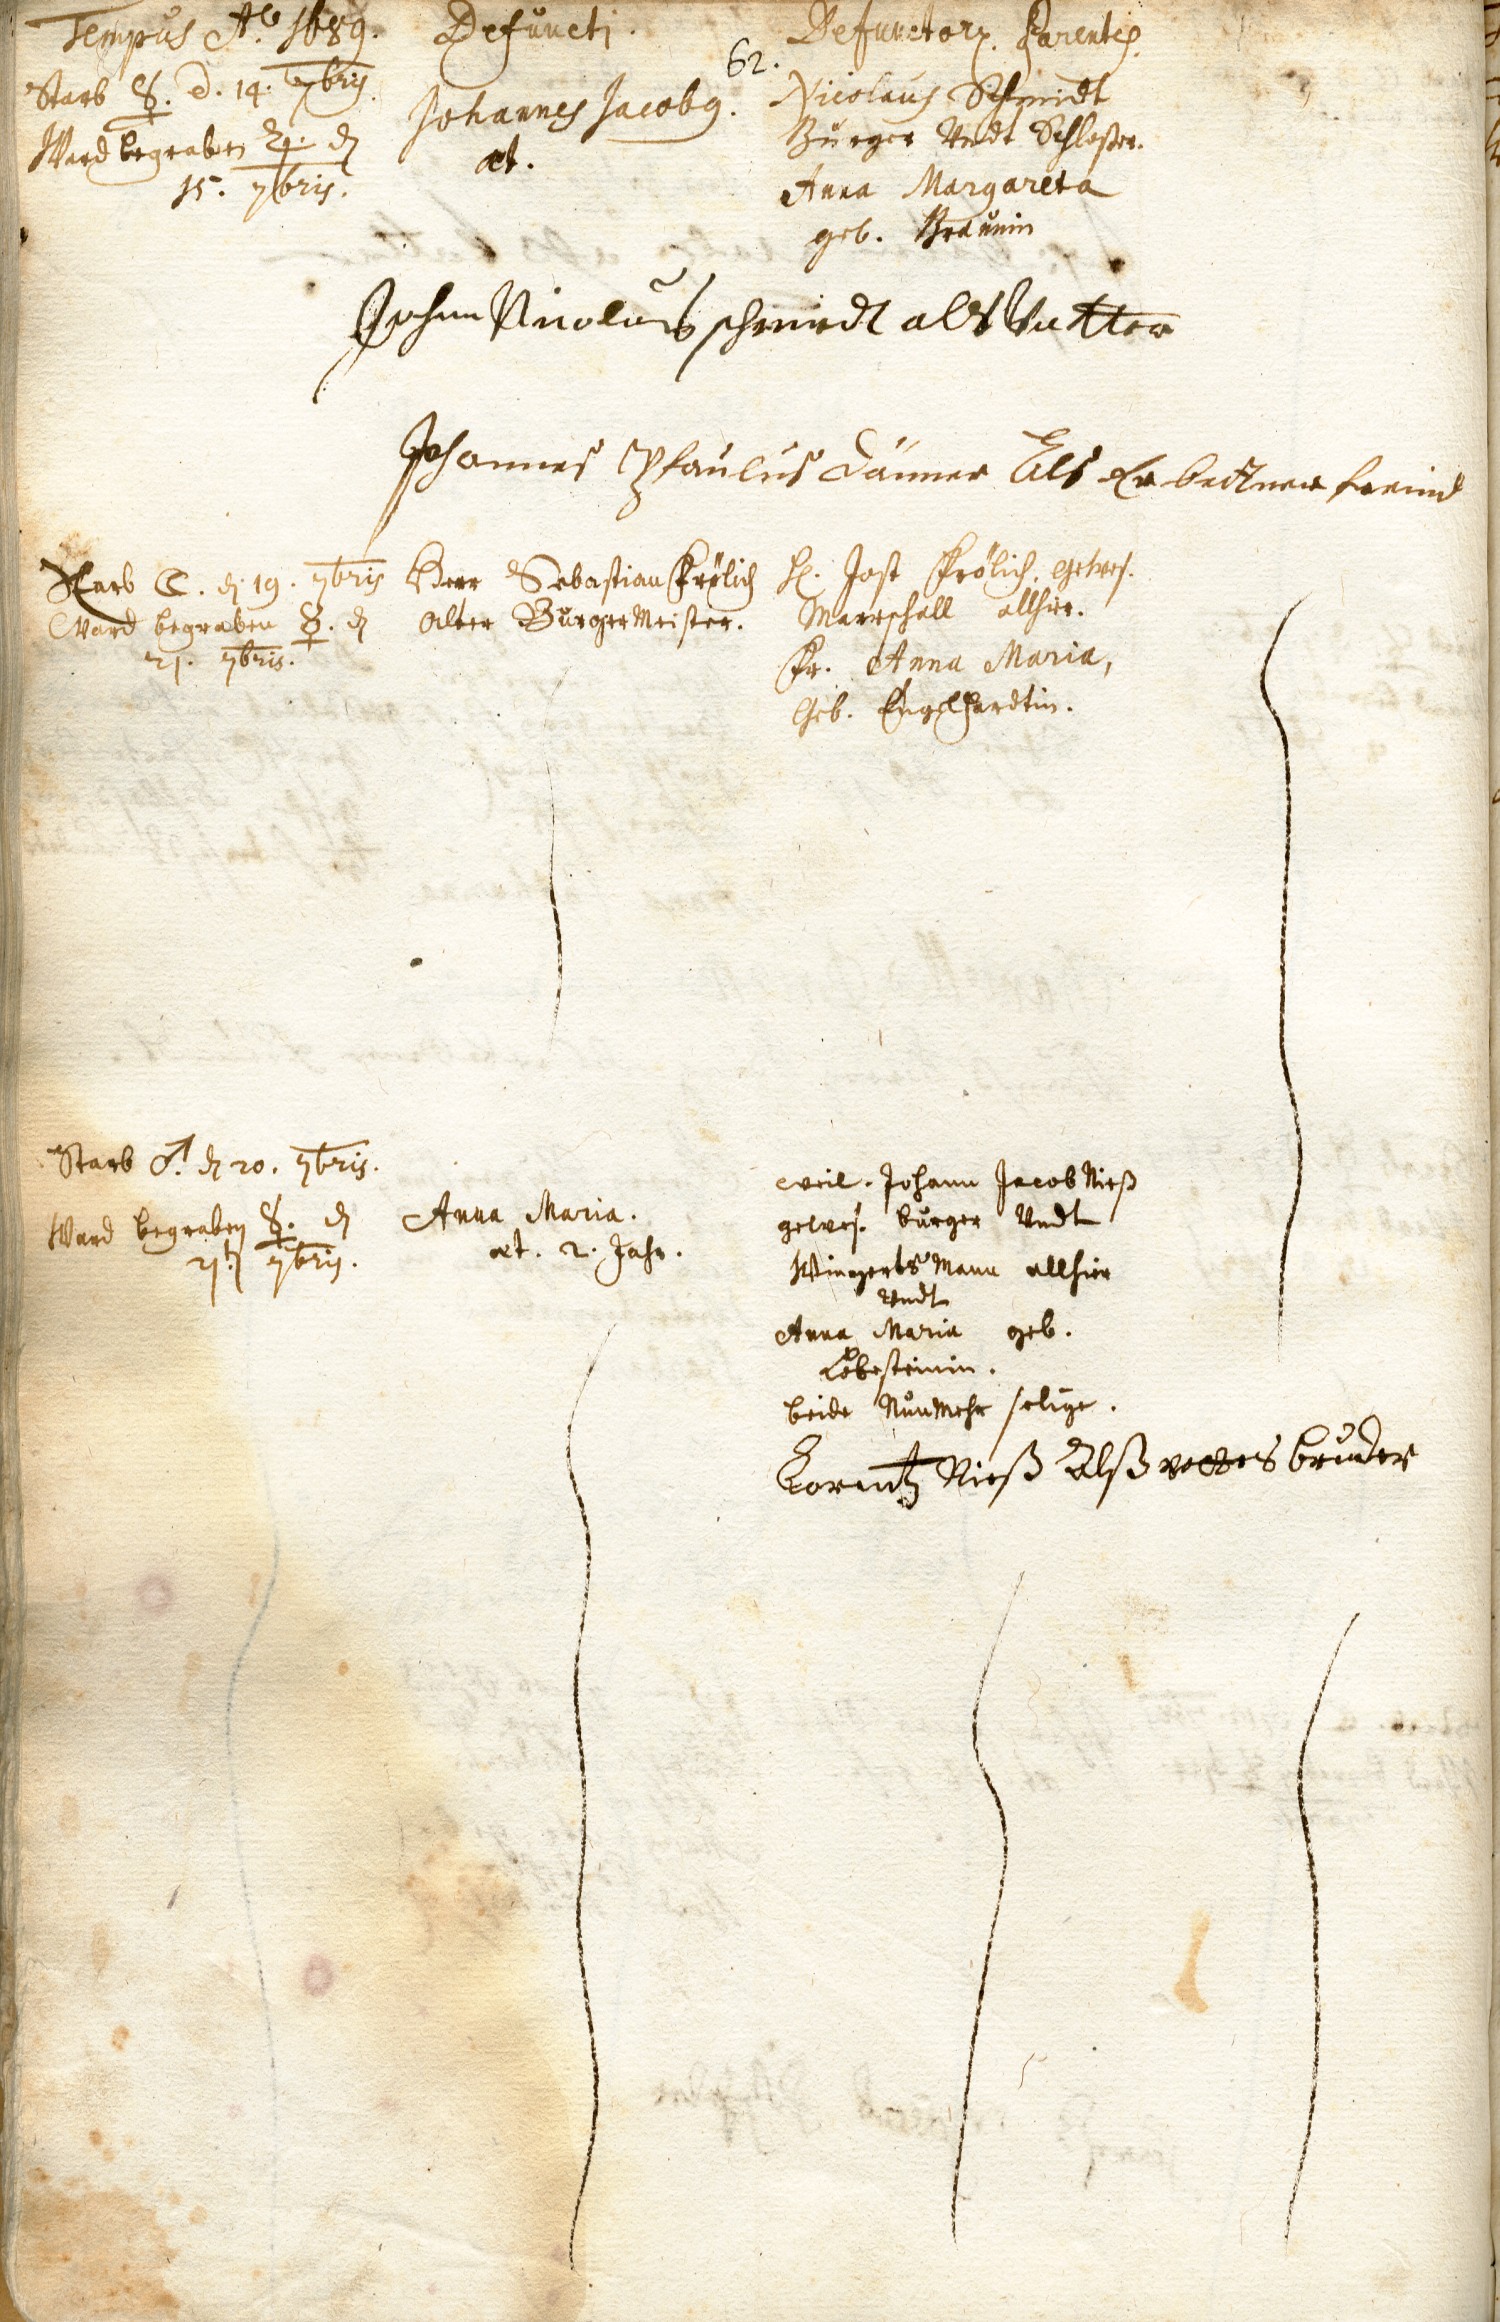 Tempus Aō. 1689.
Defuncti.
Defunctorꝝ. Parentes.
62.
Starb ☿. d. 14. 7bris.
Ward begraben ♃. d
15. 7bris.
Johannes Jacobꝰ.
æt.
Nicolaus Schmidt
Burger Vndt Schloßer.
Anna Margareta
geb. Braunin
Johan Nicolaus schmidt als Vatter
Johannes Pfaulus Danner Als Er bettner freind
Starb ☾. d. 19. 7bris
Ward begraben ☿. d
21. 7bris.
Herr Sebastian Frölich
alter BurgerMeister.
H. Jost Frölich. gewes.
Marschall allhier.
Fr. Anna Maria,
Geb. Engelhardtin.
Starb ♂. d 20. 7bris.
Ward begraben ☿. d
21. 7bris.
Anna Maria.
æt. 2. Jahr.
weil. Johann Jacob Nieß
gewes. burger Vndt
WingertsMann allhier
Vndt
Anna Maria geb.
Löbesteinin.
beide NunMehr selige.
Lorentz Nieß Alß vatters bruder